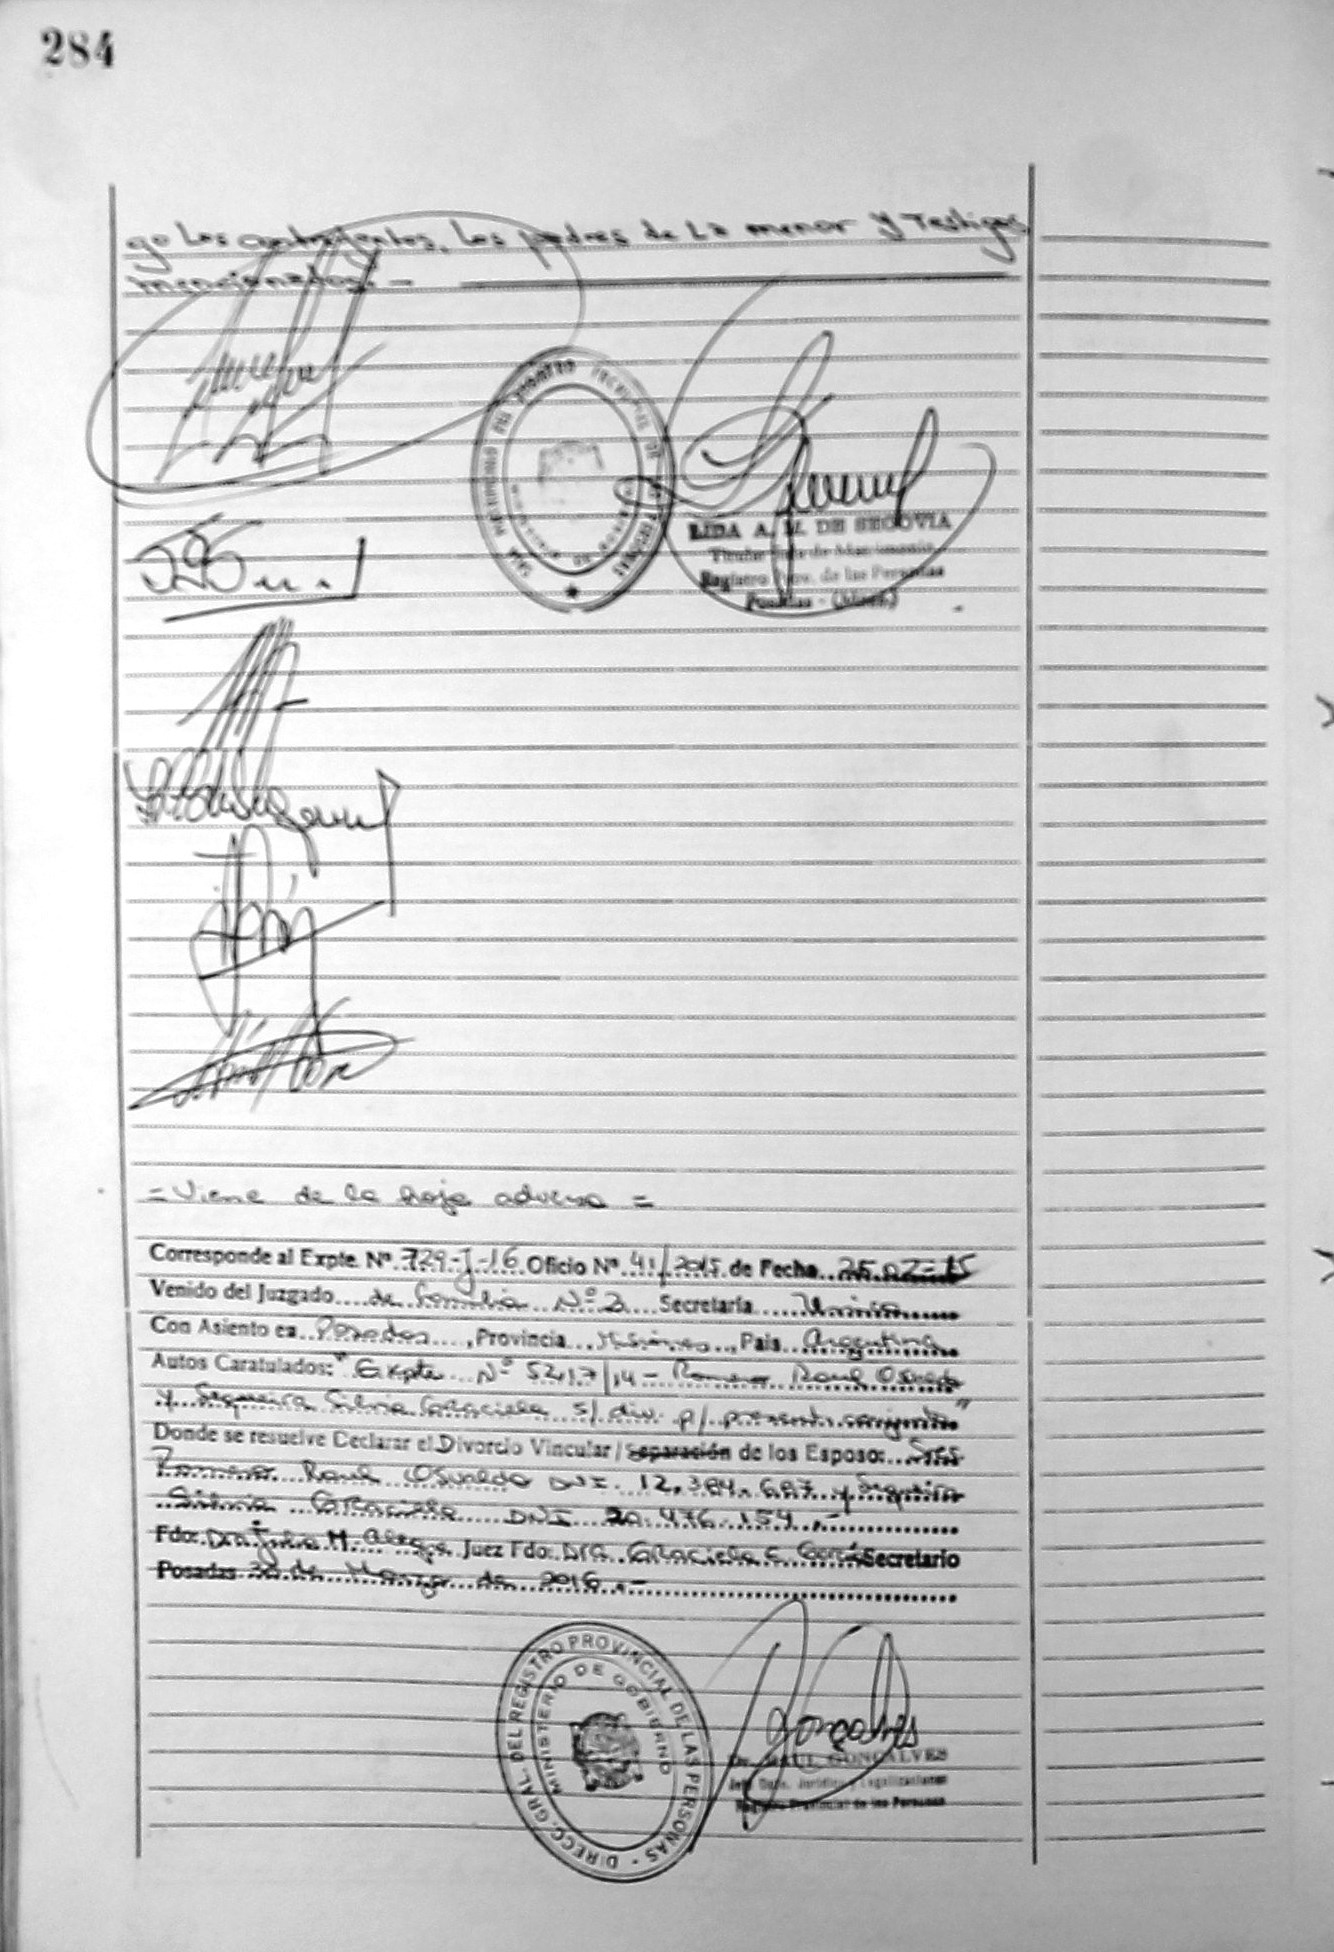 284
go Los contrayentes, Los padres de La menor y Testigos
mencionados.-
LIDA A. M. DE SEGOVIA
Titular de Matrimonio
Registro Prov. de las Personas
Posadas - (Mnes.)
= Viene de la hoja adversa =
Corresponde al Expte. Nº 729-J-16 Oficio Nº 41/2015 de Fecha 25-02-15
Venido del Juzgado de Familia Nº 2 Secretaría Unica
Con Asiento en Posadas, Provincia Misiones, Pais Argentina
Autos Caratulados: "Expte Nº 5217/14 - Romero Raul Osvaldo
y Sequeira Silvia Graciela s/ div. p/ present. conjunta"
Donde se resuelve Declarar el Divorcio Vincular / Separación de los Esposos: Sres
Romero Raul Osvaldo DNI. 12.384.687 y Sequeira
Silvia Graciela DNI 20.476.154.-
Fdo: Dra Julia H. Alegre Juez Fdo: Dra Graciela Secretario
Posadas 30 de Marzo de 2016.-
DIRECC. GRAL. DEL REGISTRO PROVINCIAL DE LAS PERSONAS -
MINISTERIO DE GOBIERNO
Gonçalves
Dr. RAUL GONCALVES
Jefe Dpto. Jurídico y Legalizaciones
Registro Provincial de las Personas